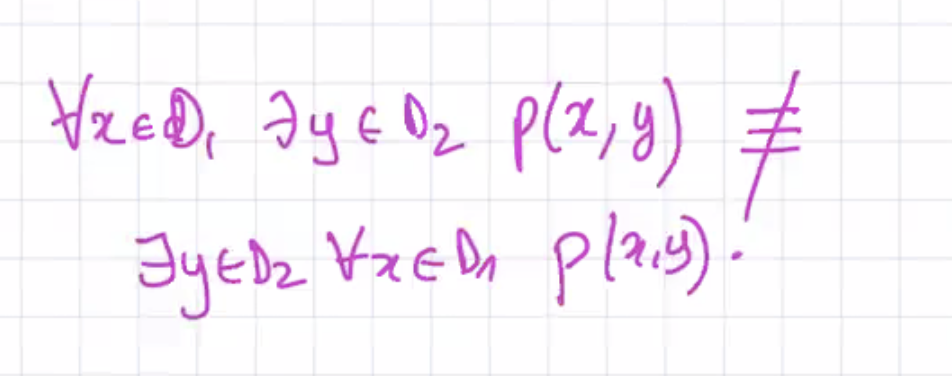 ∀x∈D₁ ∃y∈D₂ p(x,y) ≢
∃y∈D₂ ∀x∈D₁ p(x,y).